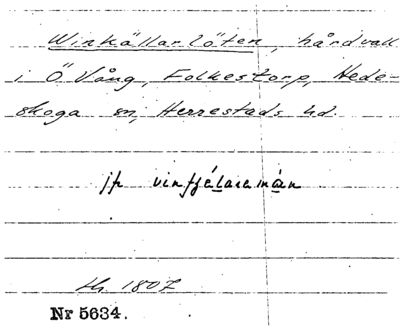 Winkällarlöten, hårdvall
i Ö Vång, Folkestorp, Hede-
skoga sn, Herrestads hd.
jfr vinfjélaramán
Lh. 1807
Nr 5634.